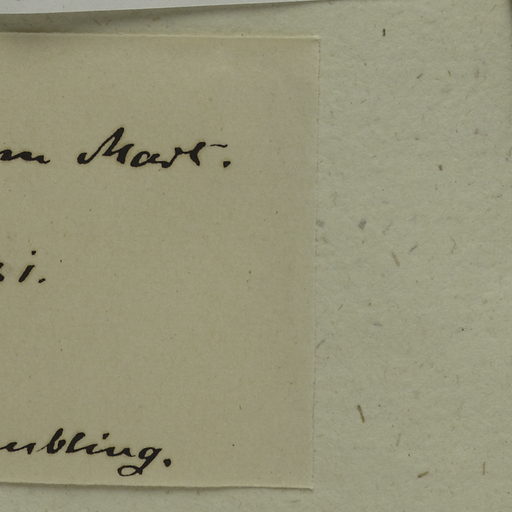 m Mart.
si.
ubling.